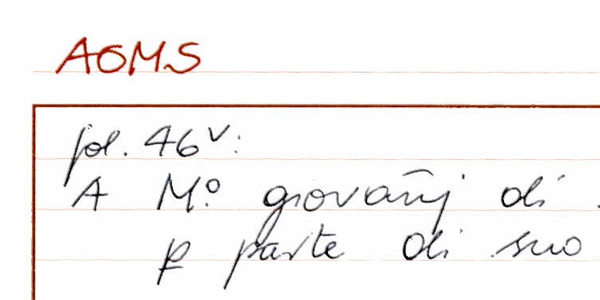 AOMS
fol. 46v:
A Mo. giovañj di
p parte di suo